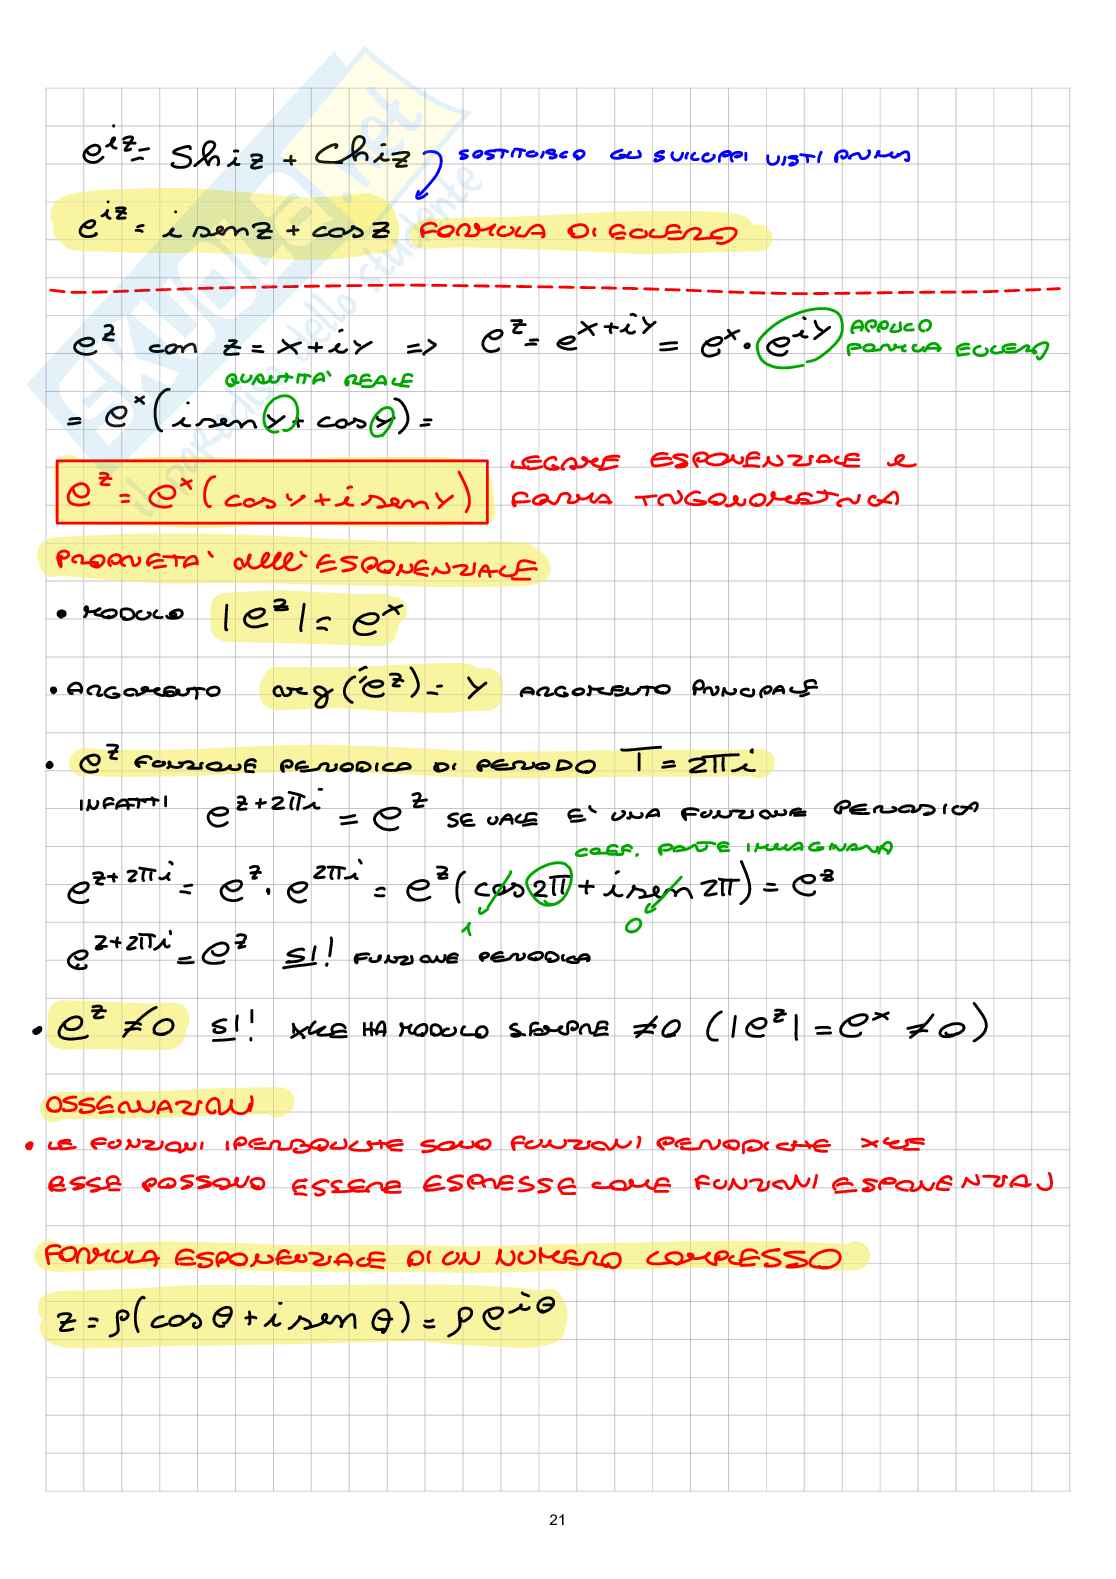 e^{iz} = Sh iz + Ch iz SOSTITUISCO GLI SVILUPPI VISTI PRIMA
e^{iz} = i sen z + cos z FORMULA DI EULERO
e^z con z = x + iy => e^z = e^{x+iy} = e^x · e^{iy} APPLICO FORMULA EULERO
QUANTITA' REALE
= e^x (i sen y + cos y) =
e^z = e^x (cos y + i sen y) LEGAME ESPONENZIALE e
FORMA TRIGONOMETRICA
PROPRIETA' dell'ESPONENZIALE
• MODULO |e^z| = e^x
• ARGOMENTO arg(e^z) = y ARGOMENTO PRINCIPALE
• e^z FUNZIONE PERIODICA DI PERIODO T = 2πi
INFATTI e^{z+2πi} = e^z SE VALE E' UNA FUNZIONE PERIODICA
COEF. PARTE IMMAGINARIA
e^{z+2πi} = e^z · e^{2πi} = e^z (cos 2π + i sen 2π) = e^z
1 0
e^{z+2πi} = e^z SI! FUNZIONE PERIODICA
• e^z ≠ 0 SI! XKE HA MODULO SEMPRE ≠ 0 (|e^z| = e^x ≠ 0)
OSSERVAZIONI
• LE FUNZIONI IPERBOLICHE SONO FUNZIONI PERIODICHE XKE
ESSE POSSONO ESSERE ESPRESSE COME FUNZIONI ESPONENZIALI
FORMULA ESPONENZIALE DI UN NUMERO COMPLESSO
z = ρ(cos θ + i sen θ) = ρ e^{iθ}
21